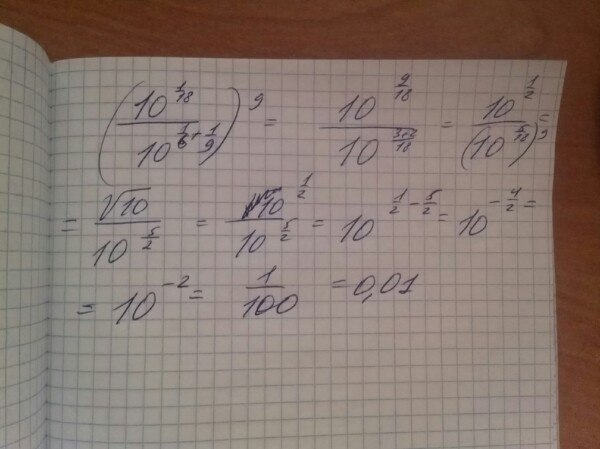 (10^(1/18) / 10^(1/6 + 1/9))^9 = 10^(9/18) / 10^((3+2)/18) = 10^(1/2) / (10^(5/18))^9 =
= √10 / 10^(5/2) = 10^(1/2) / 10^(5/2) = 10^(1/2 - 5/2) = 10^(-4/2) =
= 10^(-2) = 1/100 = 0,01